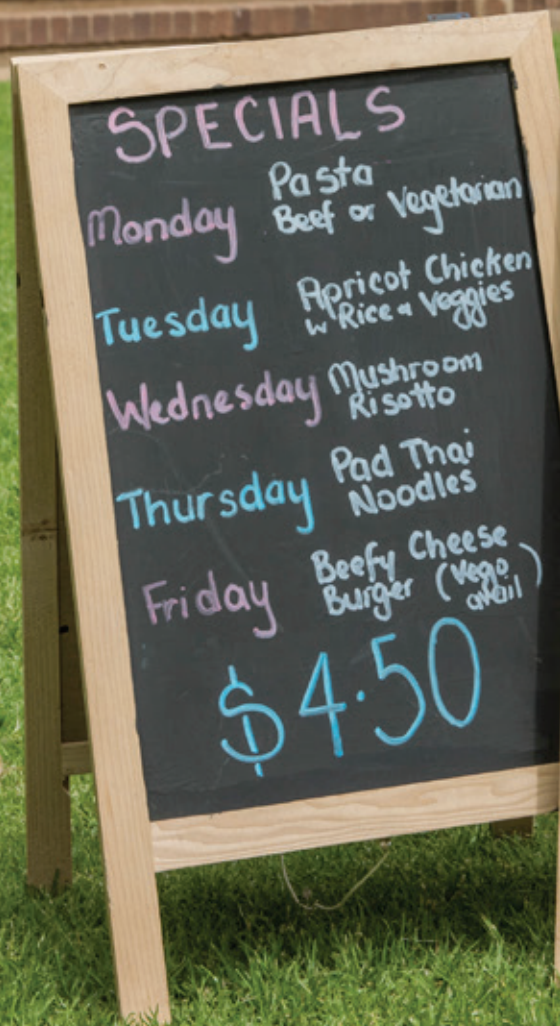 SPECIALS
Monday Pasta
Beef or Vegetarian
Tuesday Apricot Chicken
w Rice & Veggies
Wednesday Mushroom
Risotto
Thursday Pad Thai
Noodles
Friday Beefy Cheese
Burger (Vego
avail)
$4.50